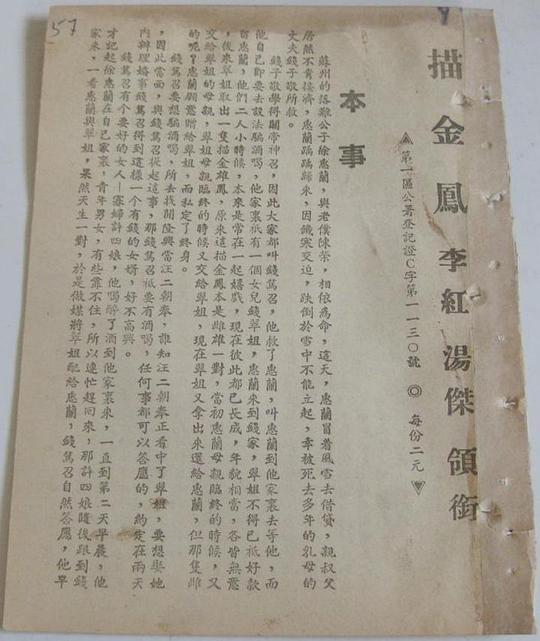 描金鳳 李紅 湯傑 領銜
▲第一區公署登記證C字第一一三〇號 ◎ 每份二元▼
本事
蘇州的落難公子徐惠蘭，與老僕陳榮，相依為命，這天，惠蘭冒着風雪去借貸，親叔父
居然不肯接濟，惠蘭踽踽歸來，因饑寒交迫，跌倒於雪中不能立起，幸被死去多年的乳母的
丈夫錢子敬所救。
錢子敬學得關帝神召，因此大家都叫錢篤召，他救了惠蘭，叫惠蘭到他家裏去等他，而
他自己即要去設法騙酒喝，他家裏祇有一個女兒錢翠姐，惠蘭來到錢家，翠姐不得已祇好款
惠蘭，他們二人小時候，本來是常在一起嬉戲，現在彼此都已長成，年貌相當，各皆無意
，後來翠姐取出一隻描金雄鳳，原來這描金鳳本是雌雄一對，當初惠蘭母親臨終的時候，又
交給翠姐的母親，翠姐母親臨終的時候又交給翠姐，現在翠姐又拿出來還給惠蘭，但那隻雌
的呢？惠蘭願意贈給翠姐，而私定了終身。
錢篤召要想騙酒喝，所去找開隆興當汪二朝奉，誰知汪二朝奉正看中了翠姐，要想娶她
，因此當面，與錢篤召提起這事，那錢篤召祇要有酒喝，任何事都可以答應的，約定在兩天
內辦理婚事錢篤召得到這樣一個有錢的女婿，好不高興。
錢篤召有個要好的女人—寡婦許四娘，他喝醉了酒到他家裏來，一直到第二天早晨，他
才記起徐惠蘭在自己家裏，青年男女，有些靠不住，所以連忙趕回來，那許四娘隨後跟到錢
家來，一看惠蘭與翠姐，果然天生一對，於是做媒將翠姐配給惠蘭，錢篤召自然答應，他早
57